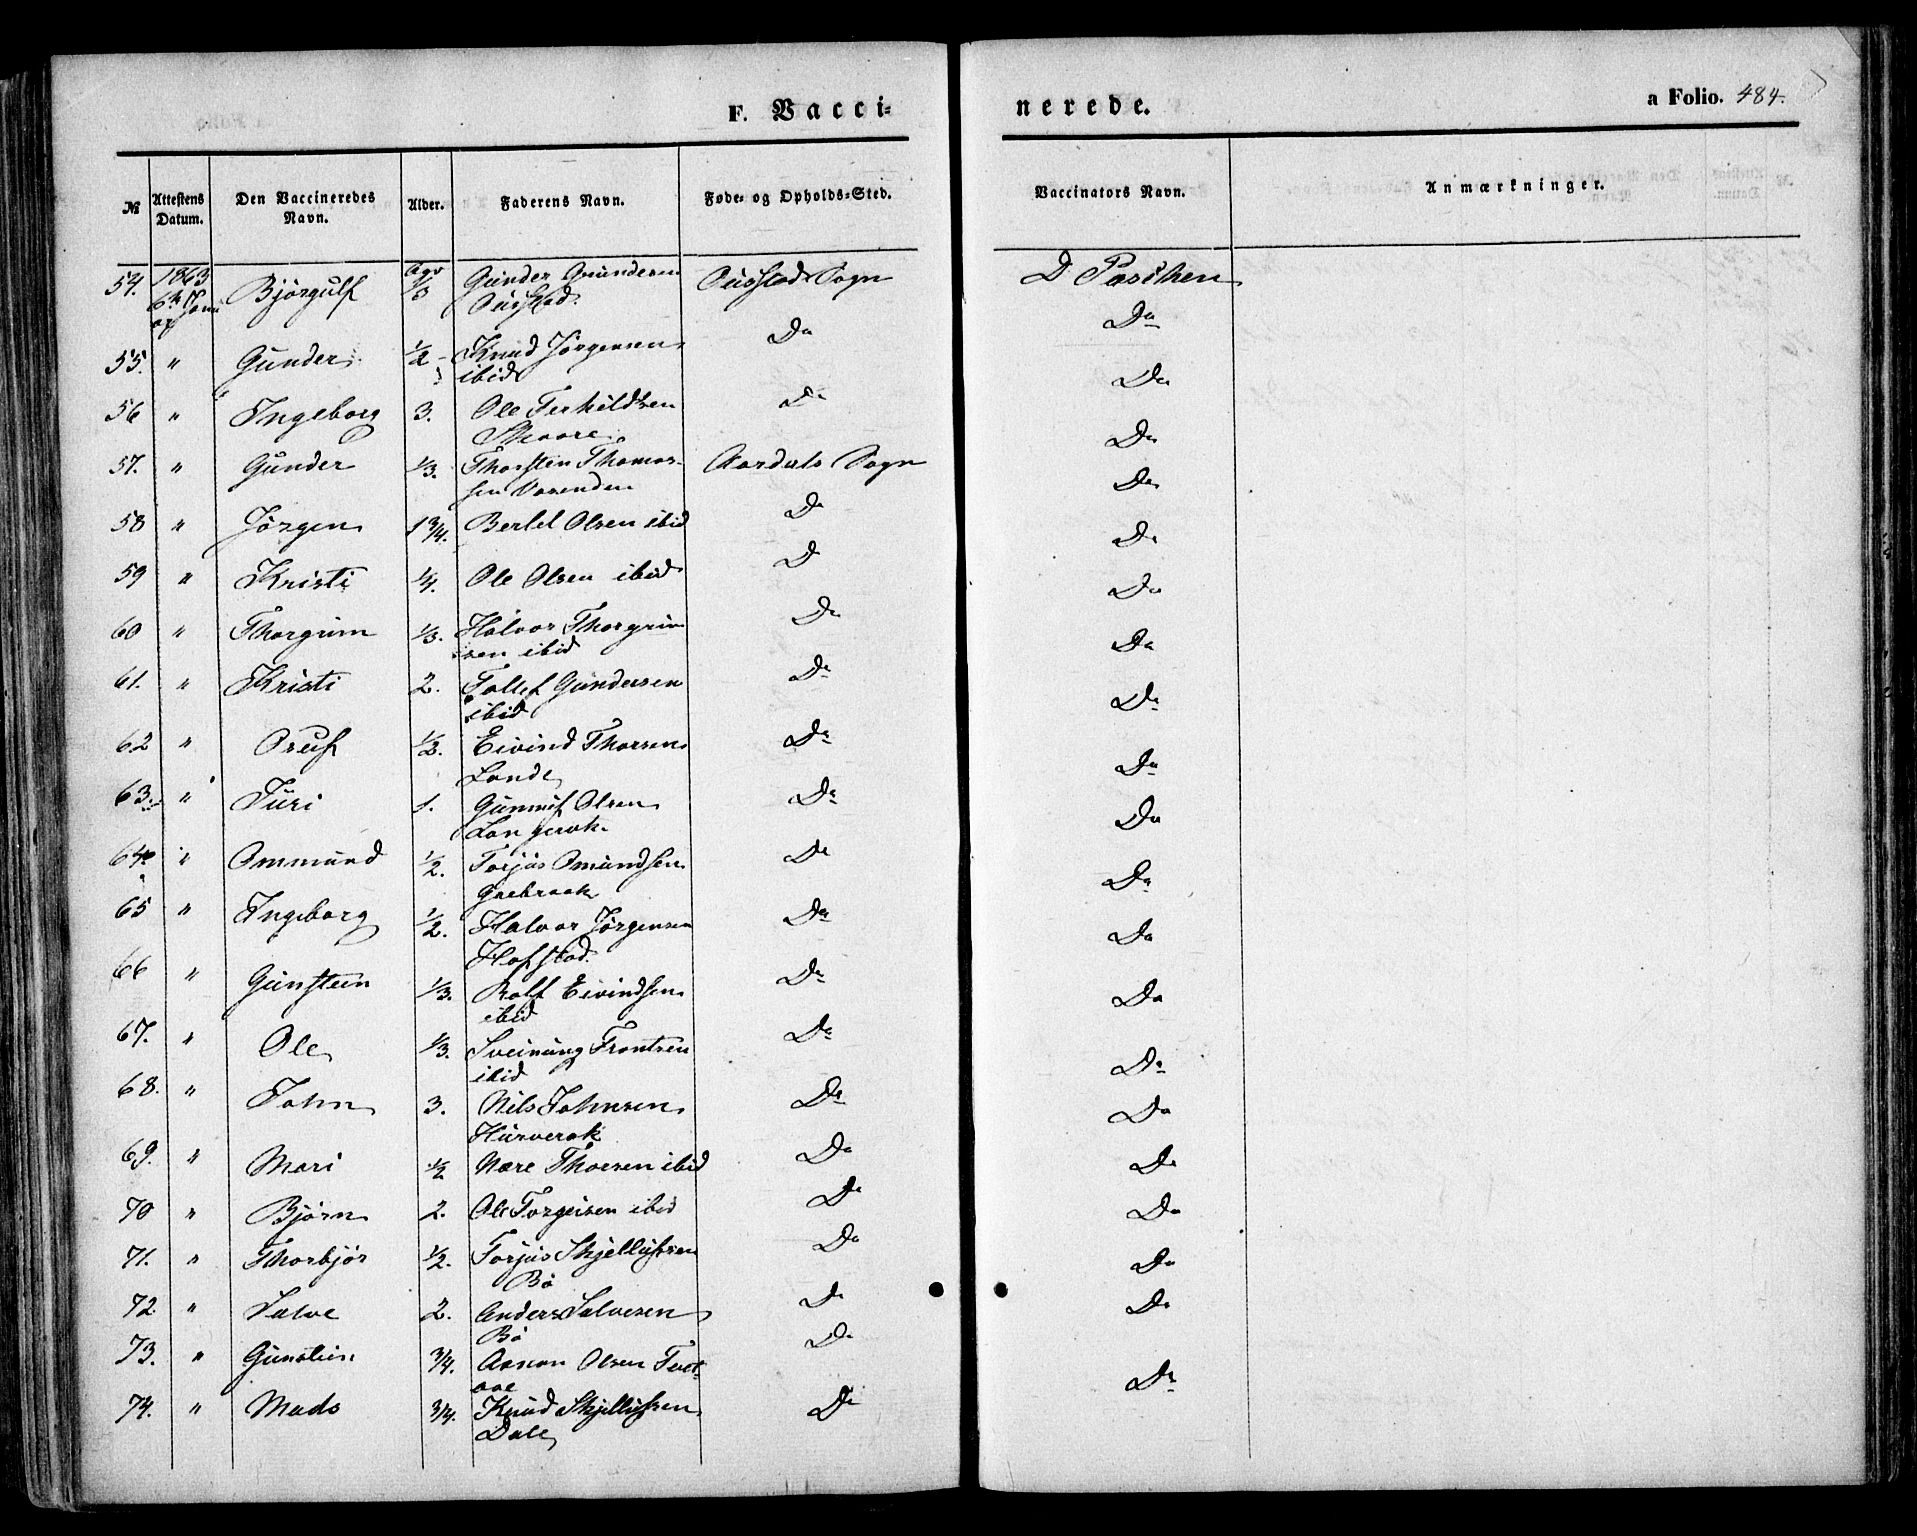 F. Vacci-
nerede.
a Folio. 484.
№ Attestens Datum. Den Vaccineredes Navn. Alder. Faderens Navn. Føde- og Opholds-Sted. Vaccinators Navn. Anmærkninger.
54. 1863 Bjørgulf 1/3 Gunder Gundersen Sogn D Paschen
55. " Gunder 1/2 Knud Jørgensen Do Do
ibid
56 " Ingeborg 3. Ole Terkildsen Do Do
Skaare
57. " Gunder 1/3. Thorsten Thomas- Aardals Sogn Do
sen
58 " Jørgen 1 3/4. Bertel Olsen ibid Do Do
59 " Kristi 1/4. Ole Olsen ibid D Do
60 " Thorgrim 1/3. Halvor Thorgrim Do Do
sen ibid
61. " Kristi 2. Tollef Gundersen Do Do
ibid
62 " 1/2. Eivind Thorsen Do Do
Lande
63. " Turi 1. Gunnuf Olsen Do Do
Langerak
64. " Ommund 1/2. Torjus Omundsen Do Do
65 " Ingeborg 1/2. Halvor Jørgensen Do Do
Hofstad
66 " Gunstein 1/3. Rolf Eivindsen Do Do
ibid
67. " Ole 1/3. Sveinung Frontsen Do Do
ibid
68. " John 3. Nils Johnsen Do Do
Hurverak
69. " Mari 1/2 ibid Do Do
70 " Bjørn 2. Ole Torgeisen ibid Do Do
71. " Thorbjør 1/2. Torjus Skjellufsen Do Do
Bø
72. " Salve 2. Anders Salvesen Do Do
Bø
73. " Gunstein 3/4. Aanon Olsen Do Do
74. " Mads 3/4. Knud Skjellufsen Do Do
Dale